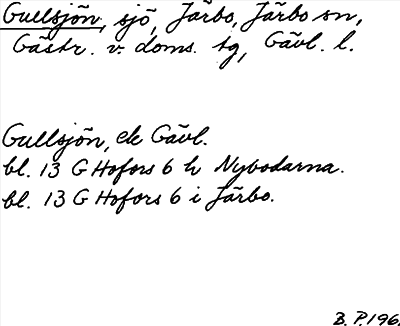 Gullsjön, sjö, Järbo, Järbo sn,
Gästr. v. doms. tg, Gävl. l.
Gullsjön, ek Gävl.
bl. 13 G Hofors 6 h Nybodarna.
bl. 13 G Hofors 6 i Järbo.
B. P. 196.